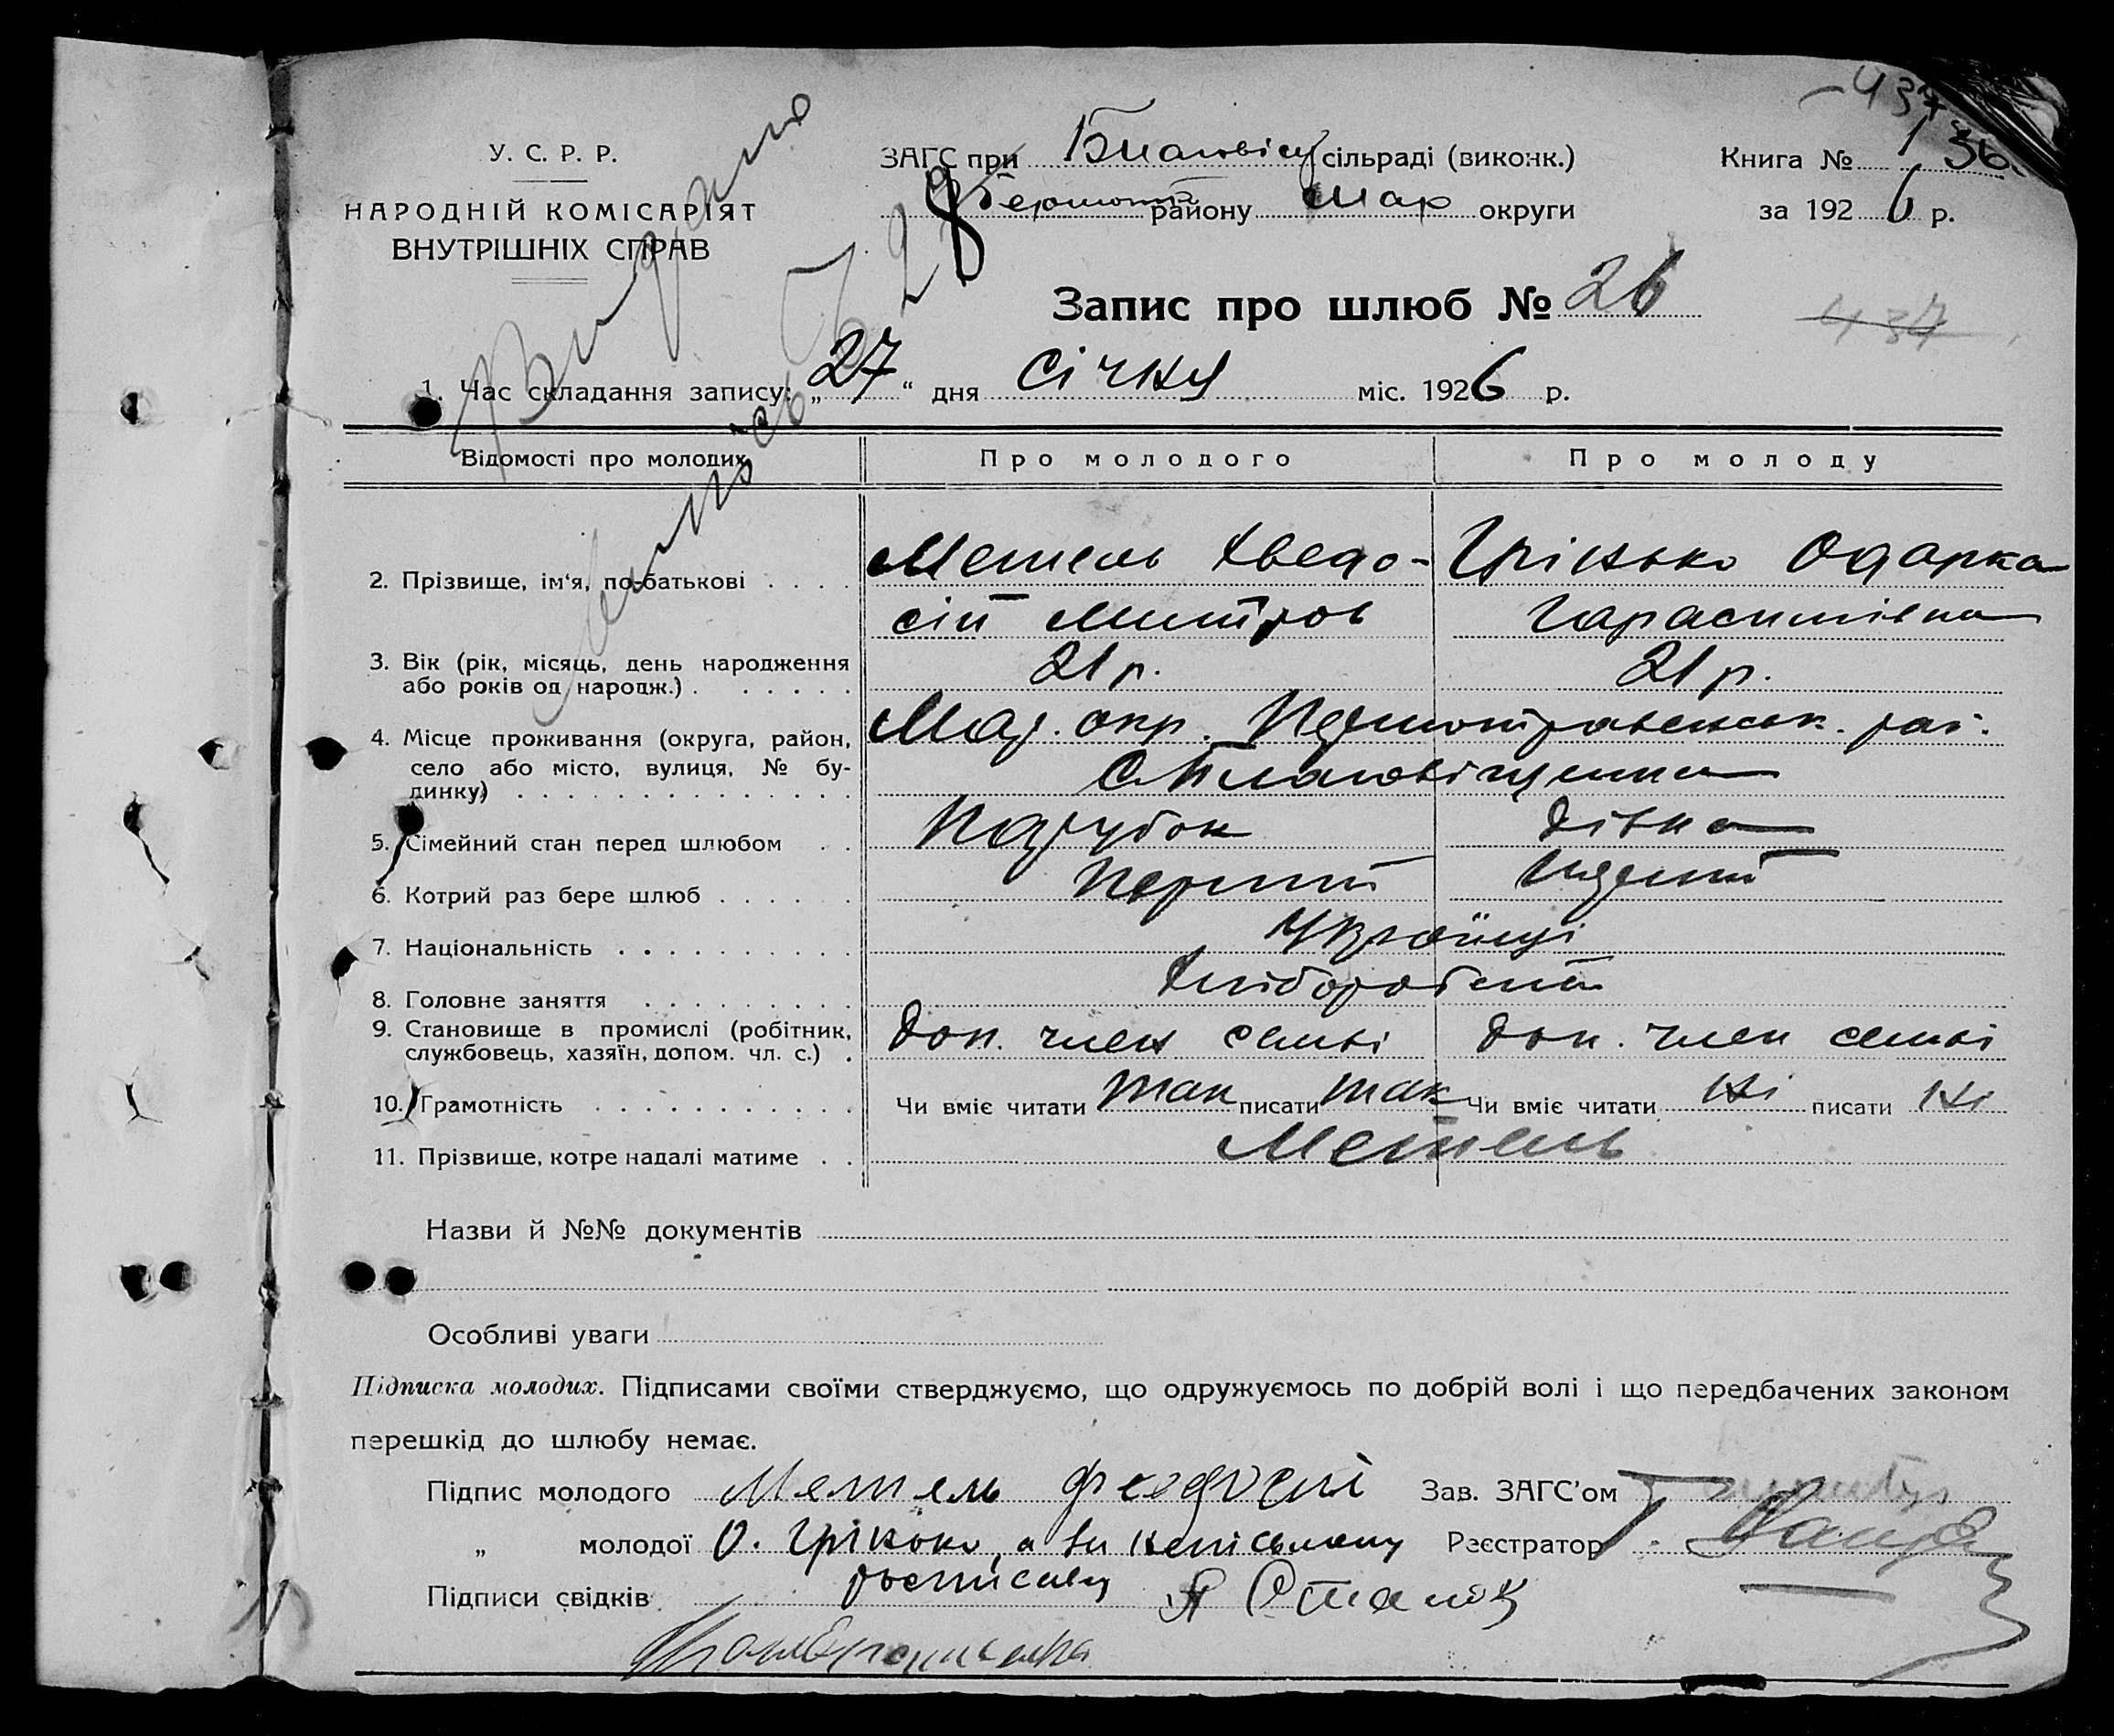 - 437
У. С. Р. Р.
НАРОДНІЙ КОМІСАРІЯТ
ВНУТРІШНІХ СПРАВ
ЗАГС при Благовіщ сільраді (виконк.)
району Мар округи
Книга № 1 36.
за 1926 р.
Запис про шлюб № 26
437
Видано
28
1. Час складання запису: „27“ дня січня міс. 1926 р.
Відомості про молодих
Про молодого
Про молоду
2. Прізвище, ім'я, по-батькові . . . .
Метель Хведо-
сій Митров
Гріцько Одарка
Гарасимівна
3. Вік (рік, місяць, день народження
або років од народж.) . . . . . .
21 р.
21 р.
4. Місце проживання (округа, район,
село або місто, вулиця, № бу-
динку) . . . . . . . . . . . . . .
Мар. окр. Першотравенськ. рай.
С. Благовіщенка
5. Сімейний стан перед шлюбом . .
Парубок
Дівка
6. Котрий раз бере шлюб . . . . . .
Перший
Перший
7. Національність . . . . . . . . . .
Українці
8. Головне заняття . . . . . . . . .
Хліборобский
9. Становище в промислі (робітник,
службовець, хазяїн, допом. чл. с.) .
Доп. член семьі
Доп. член семьі
10. Грамотність . . . . . . . . . . . .
Чи вміє читати так писати так
Чи вміє читати ні писати ні
11. Прізвище, котре надалі матиме . .
Метель
Назви й №№ документів
Особливі уваги
Підписка молодих. Підписами своїми стверджуємо, що одружуємось по добрій волі і що передбачених законом
перешкід до шлюбу немає.
Підпис молодого Метель Феодосій
Зав. ЗАГС'ом
„ молодої О. Грікоко, а за неписьмену
Реєстратор
росписавсь
Підписи свідків